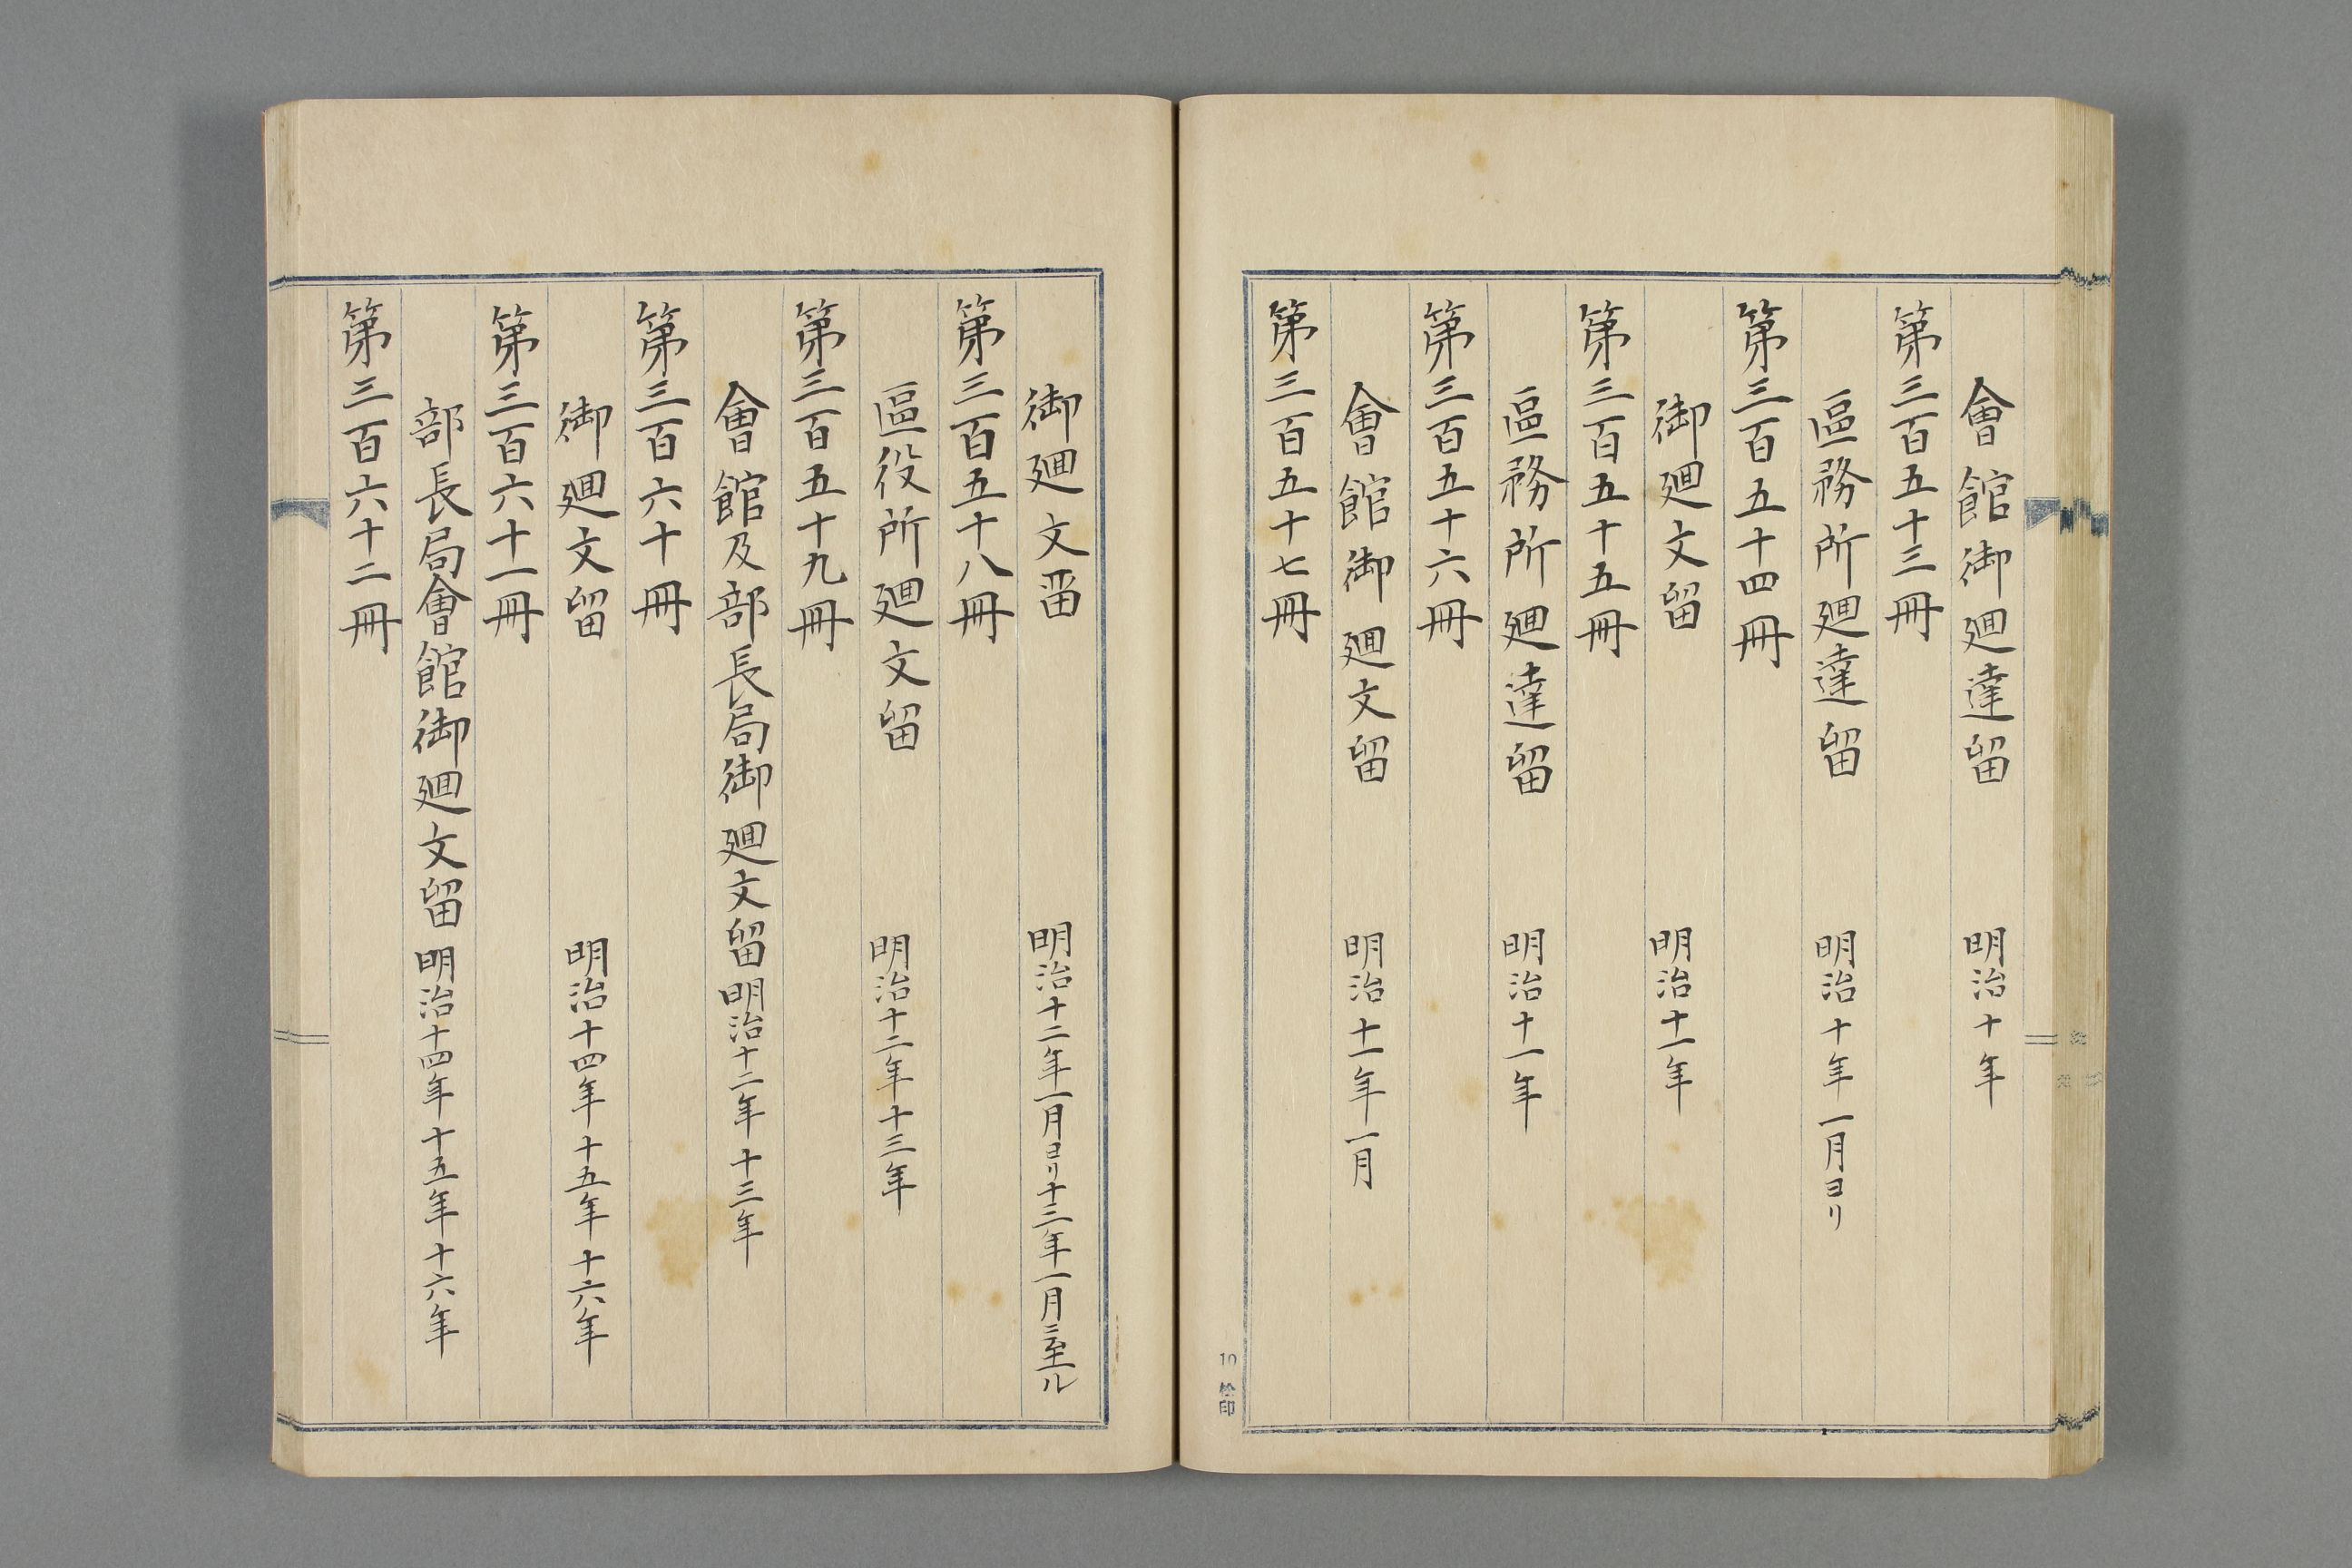 會館御廻達留　明治十年
第三百五十三冊
區務所廻達留　明治十年一月ヨリ
第三百五十四冊
御廻文留　明治十一年
第三百五十五冊
區務所廻達留　明治十一年
第三百五十六冊
會館御廻文留　明治十一年一月
第三百五十七冊
10 松印
御廻文畱　明治十二年一月ヨリ十三年一月ニ至ル
第三百五十八冊
區役所廻文留　明治十二年十三年
第三百五十九冊
會館及部長局御廻文留明治十二年十三年
第三百六十冊
御廻文留　明治十四年十五年十六年
第三百六十一冊
部長局會館御廻文留明治十四年十五年十六年
第三百六十二冊